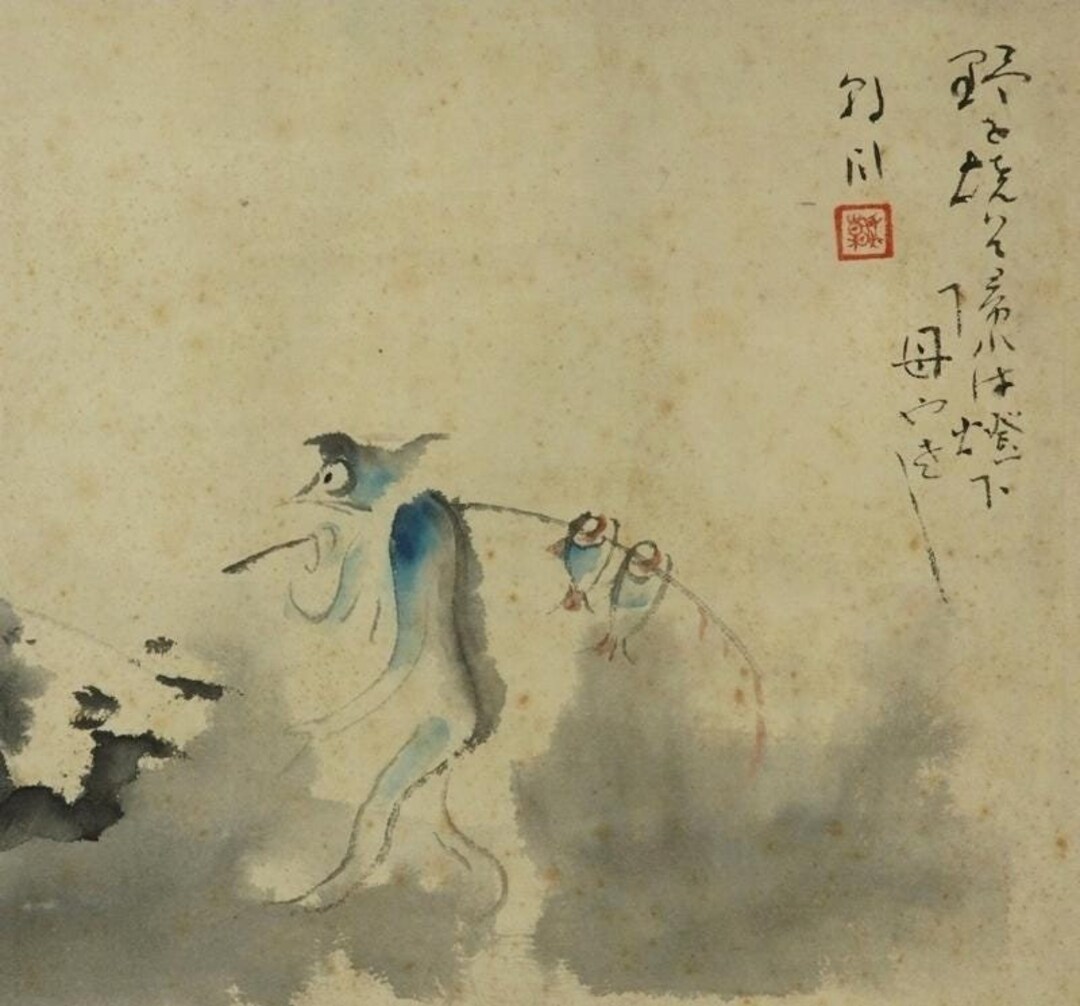 野を燒いて帰れは燈下
母やさし